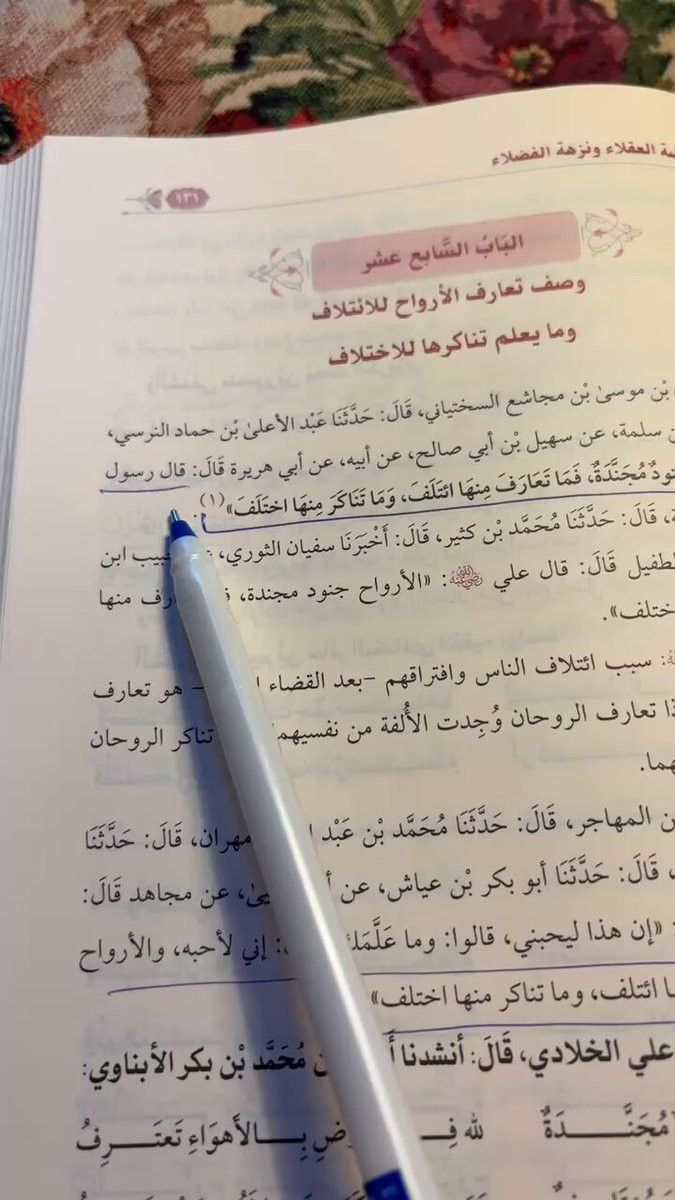 ـة العقلاء ونزهة الفضلاء
١٣١
البَابُ السَّابع عشر
وصف تعارف الأرواح للائتلاف
وما يعلم تناكرها للاختلاف
بْن موسىٰ بْن مجاشع السختياني، قَالَ: حَدَّثَنَا عَبْد الأعلىٰ بْن حماد النرسي،
ـن سلمة، عن سهيل بْن أبي صالح، عن أبيه، عن أبي هريرة قَالَ: قال رسول
ـنودٌ مُجَنَّدَةٌ، فَمَا تَعَارَفَ مِنهَا ائتَلَفَ، وَمَا تَنَاكَرَ مِنهَا اختَلَفَ» (١).
ـة، قَالَ: حَدَّثَنَا مُحَمَّد بْن كثير، قَالَ: أَخْبَرَنَا سفيان الثوري، ـبيب ابن
ـطفيل قَالَ: قال علي ﷺ: «الأرواح جنود مجندة، ـارف منها
ـختلف».
سبب ائتلاف الناس وافتراقهم -بعد القضاء - هو تعارف
ـذا تعارف الروحان وُجِدت الأُلفة من نفسيهما تناكر الروحان
ـهما.
ـن المهاجر، قَالَ: حَدَّثَنَا مُحَمَّد بْن عَبْد مهران، قَالَ: حَدَّثَنَا
، قَالَ: حَدَّثَنَا أبو بكر بْن عياش، عن ـيىٰ، عن مجاهد قَالَ:
: «إن هذا ليحبني، قالوا: وما عَلَّمَكَ : إني لأحبه، والأرواح
ـا ائتلف، وما تناكر منها اختلف»
علي الخلادي، قَالَ: أنشدنا ـن مُحَمَّد بْن بكر الأبناوي:
مُجَنَّــــدَةٌ لله فِـ ـضِ بِــالأَهوَاءِ تَعتَــرِفُ